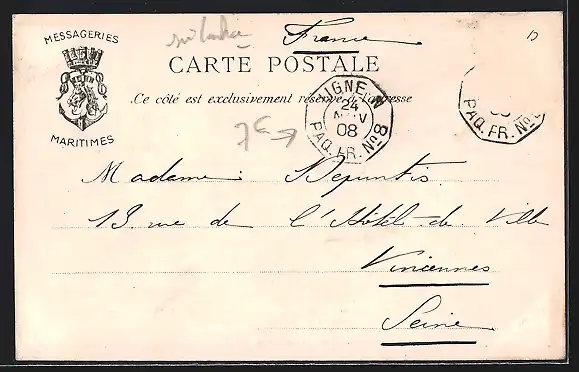 MESSAGERIES
MARITIMES
France
CARTE POSTALE
Ce côté est exclusivement réservé à l'adresse
LIGNE N
24
08
PAQ. FR. Nº 8
PAQ. FR. Nº
Madame
13 rue de l'Hôtel-de Ville
Vincennes
Seine